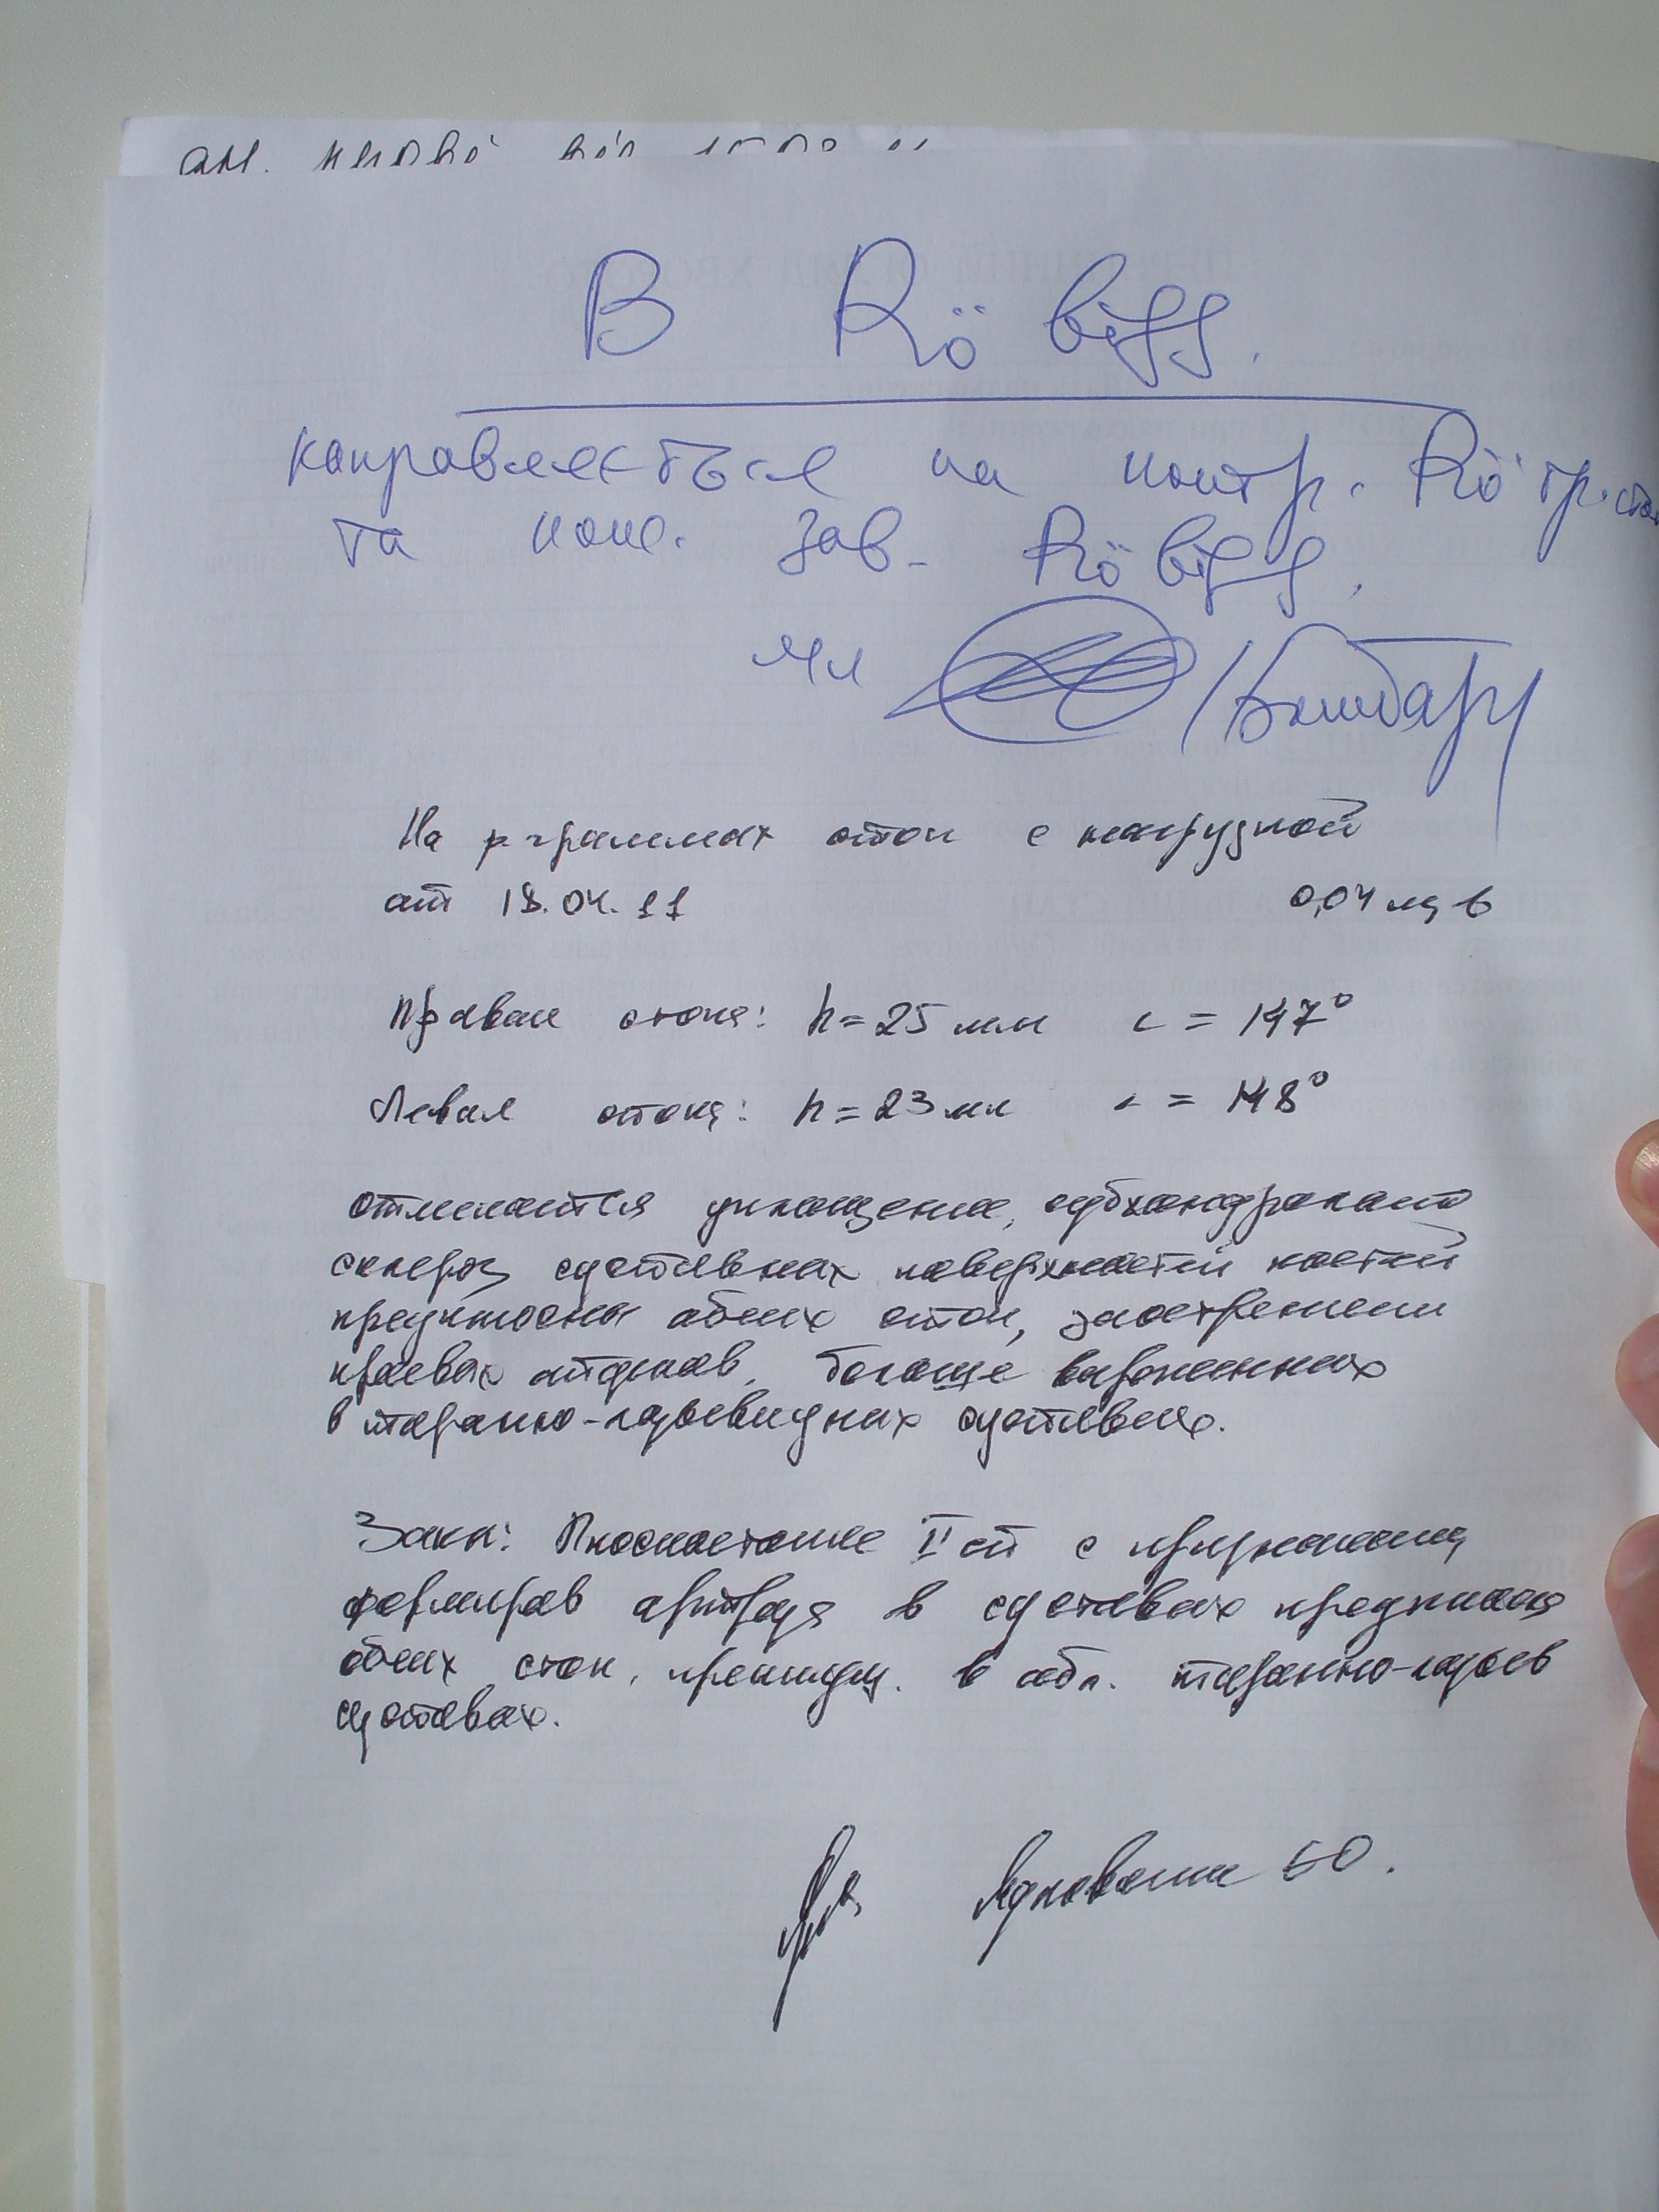 В Rö відд.
направляється на контр. Rö гр. сто
та конс. зав. Rö відд.
/Бондар/
На р-граммах стоп с нагрузкой
от 18.04.11 0,04 мзв
Правая стопа: h=25 мм ∠ = 147°
Левая стопа: h=23 мм ∠ = 148°
отмечается уплощение, субхондральный
склероз суставных поверхностей костей
предплюсны обеих стоп, заострения
краевых отделов, больше выраженных
в таранно-ладьевидных суставах.
Закл: Плоскостопие II ст с признаками
формиров артроза в суставах предплюсны
обеих стоп, преимущ. в обл. таранно-ладьев
суставах.